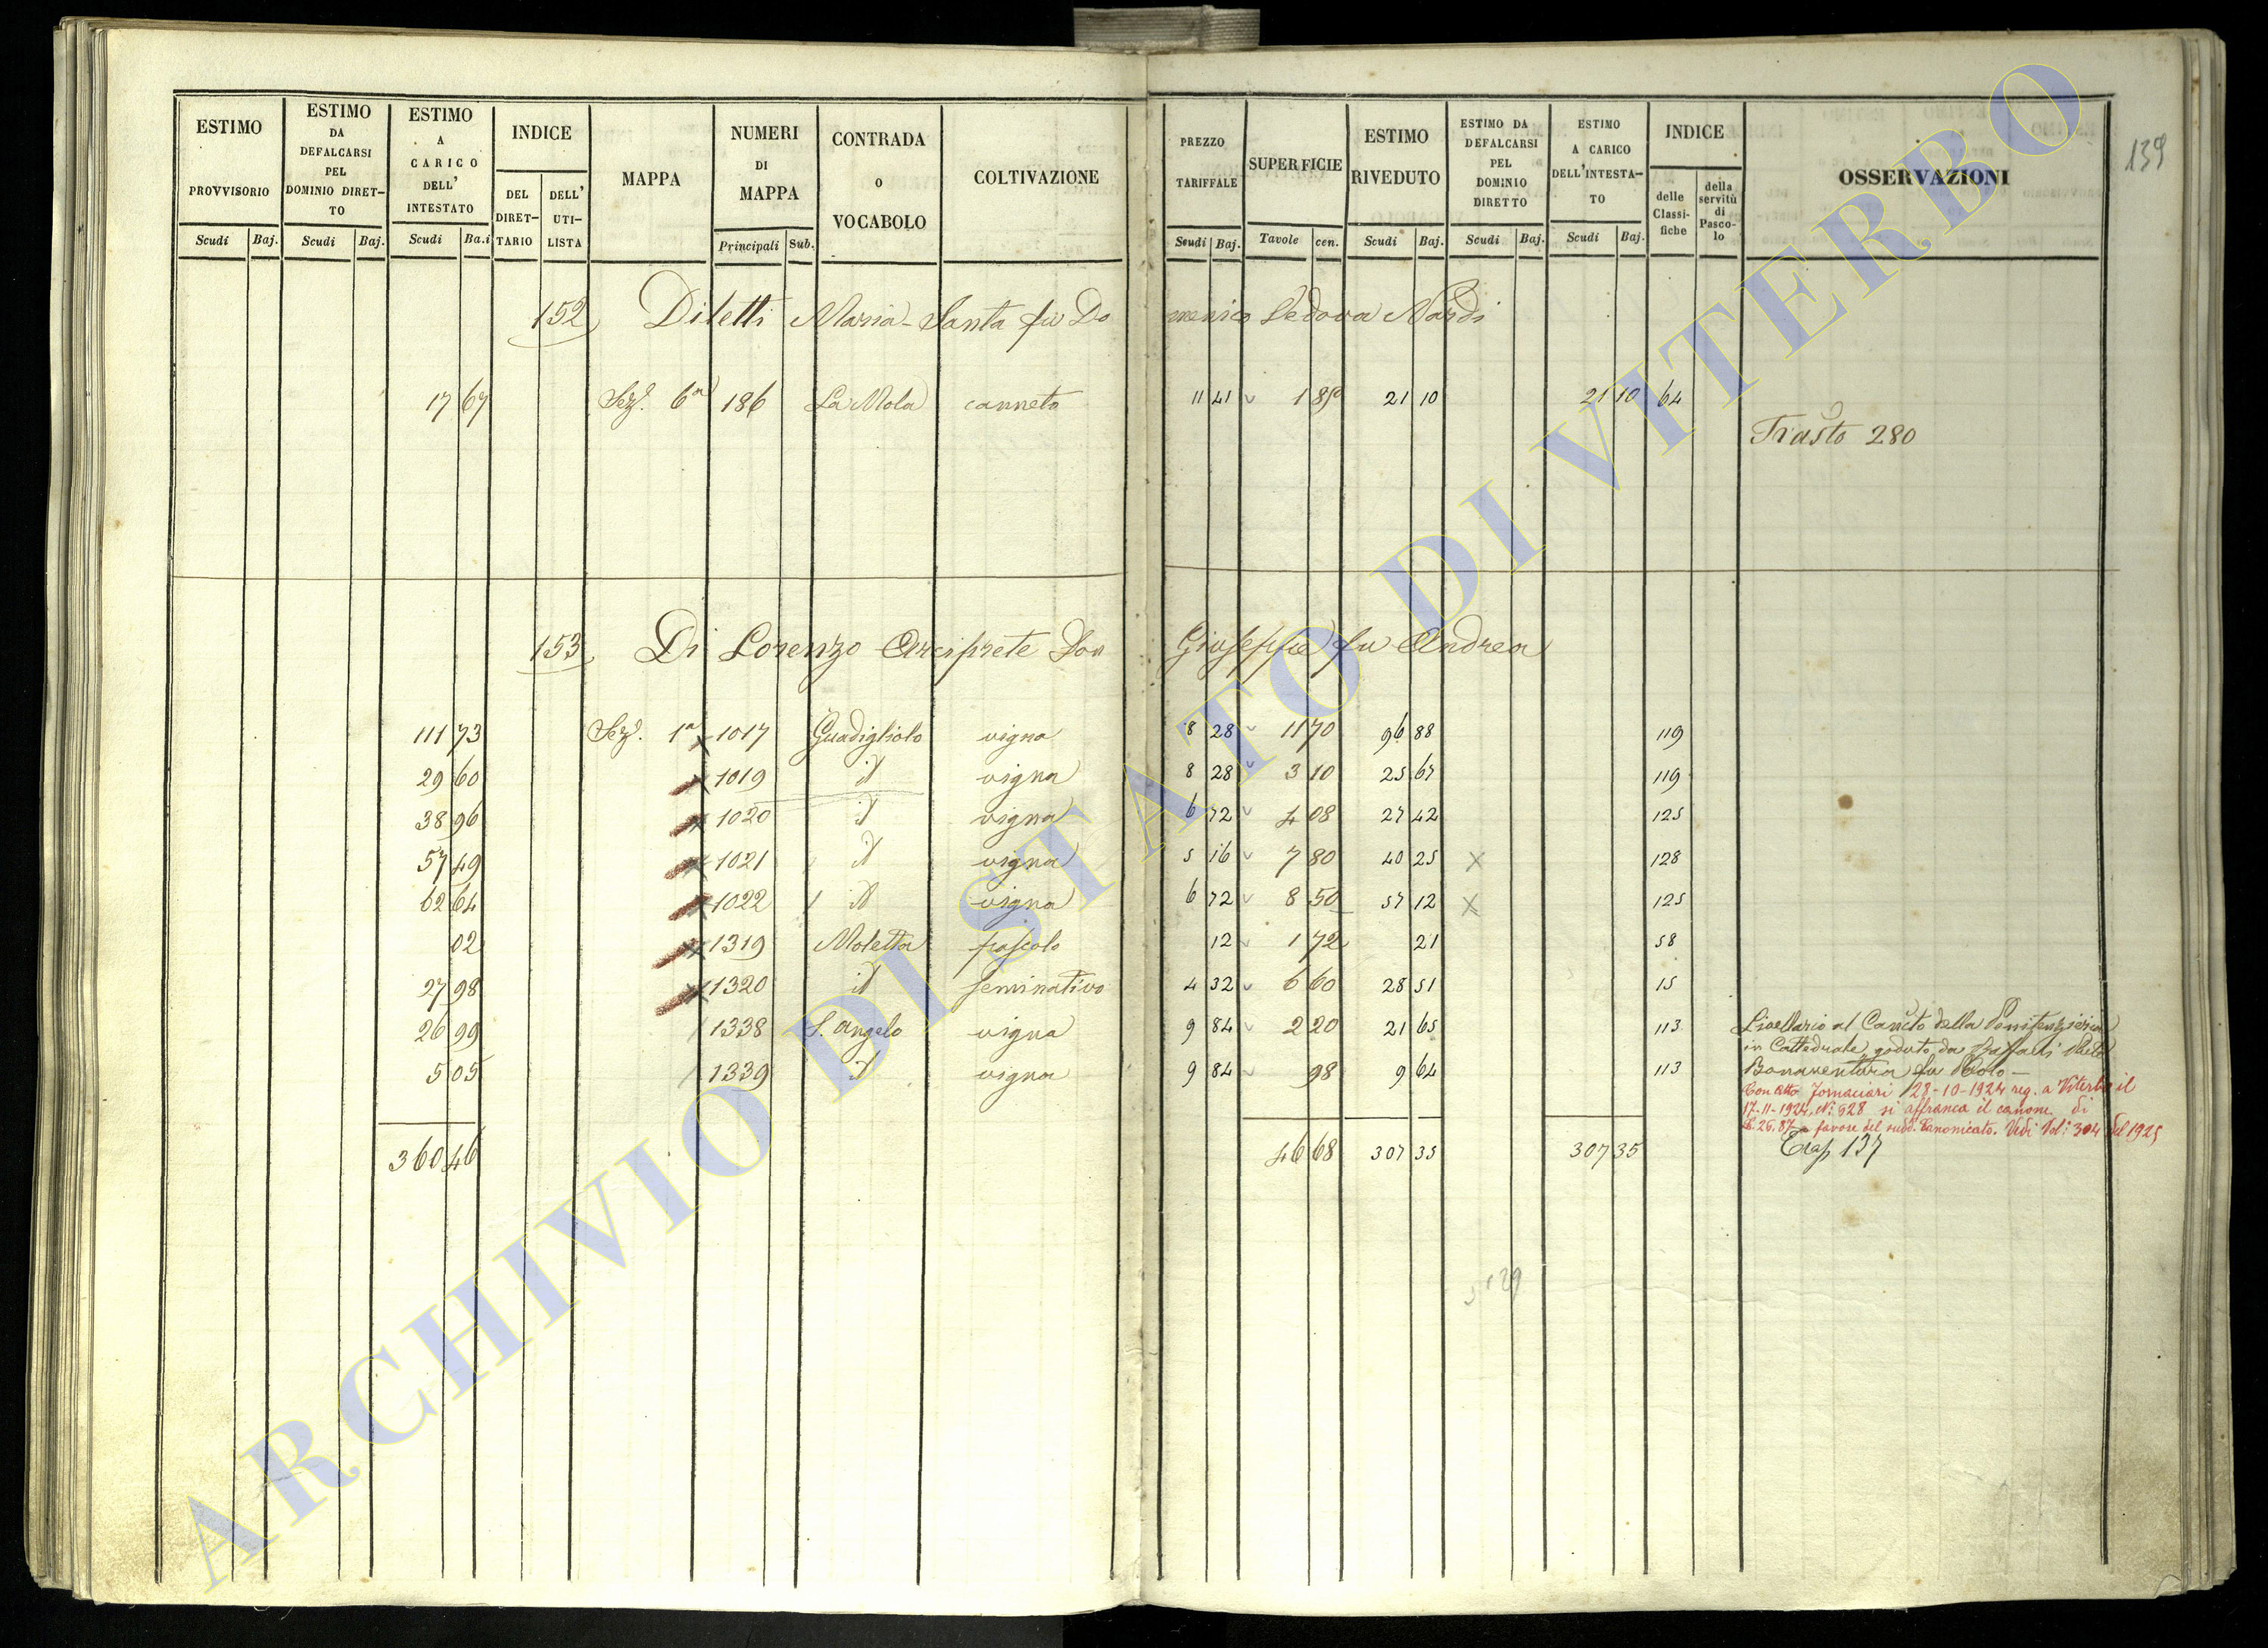 139
ESTIMO PROVVISORIO Scudi Baj.
ESTIMO DA DEFALCARSI PEL DOMINIO DIRET-TO Scudi Baj.
ESTIMO A CARICO DELL' INTESTATO Scudi Ba.i
INDICE DEL DIRET-TARIO DELL' UTI-LISTA
MAPPA
NUMERI DI MAPPA Principali Sub.
CONTRADA O VOCABOLO
COLTIVAZIONE
PREZZO TARIFFALE Scudi Baj.
SUPERFICIE Tavole cen.
ESTIMO RIVEDUTO Scudi Baj.
ESTIMO DA DEFALCARSI PEL DOMINIO DIRETTO Scudi Baj.
ESTIMO A CARICO DELL'INTESTA-TO Scudi Baj.
INDICE delle Classi-fiche della servitù di Pasco-lo
OSSERVAZIONI
152 Diletti Maria-Santa fu Do menico Vedova Nardi
17 67 Sez. 6a 186 La Mola canneto 11 41 1 85 21 10 21 10 64
Trasto 280
153 Di Lorenzo Arciprete Don Giuseppe fu Andrea
111 73 Sez. 1a 1017 Guadigliolo vigna 8 28 11 70 96 88 119
29 60 1019 id vigna 8 28 3 10 25 67 119
38 96 1020 id vigna 6 72 4 08 27 42 125
57 49 1021 id vigna 5 16 7 80 40 25 x 128
62 64 1022 id vigna 6 72 8 50 57 12 x 125
02 1319 Moletta pascolo 12 1 72 21 58
27 98 1320 id seminativo 4 32 6 60 28 51 15
26 99 1338 S. Angelo vigna 9 84 2 20 21 65 113
5 05 1339 id vigna 9 84 98 9 64 113
Livellario al Canto della Penitenzieria
in Cattedrale, goduto da
Bonaventura fu
Con atto Fornaciari 28-10-1924 reg. a Viterbo il
17-11-1924, N: 628 si affranca il canone di
L. 26.87 a favore del sudd. Canonicato. Vedi Vol: 304 del 1925
360 46 46 68 307 35 307 35
Trasp 137
129
ARCHIVIO DI STATO DI VITERBO